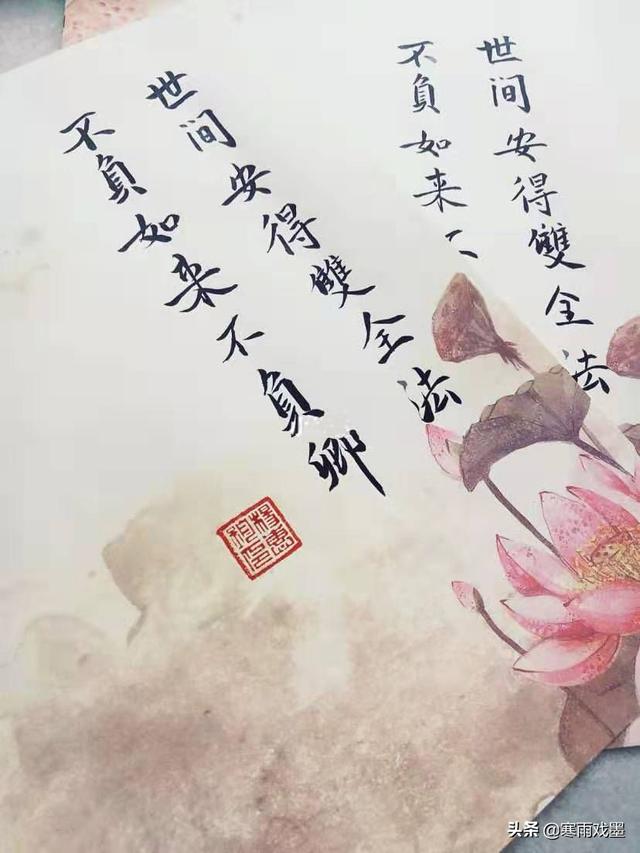 世间安得雙全法
不負如来
世间安得雙全法
不負如来不負卿
头条 @寒雨戏墨